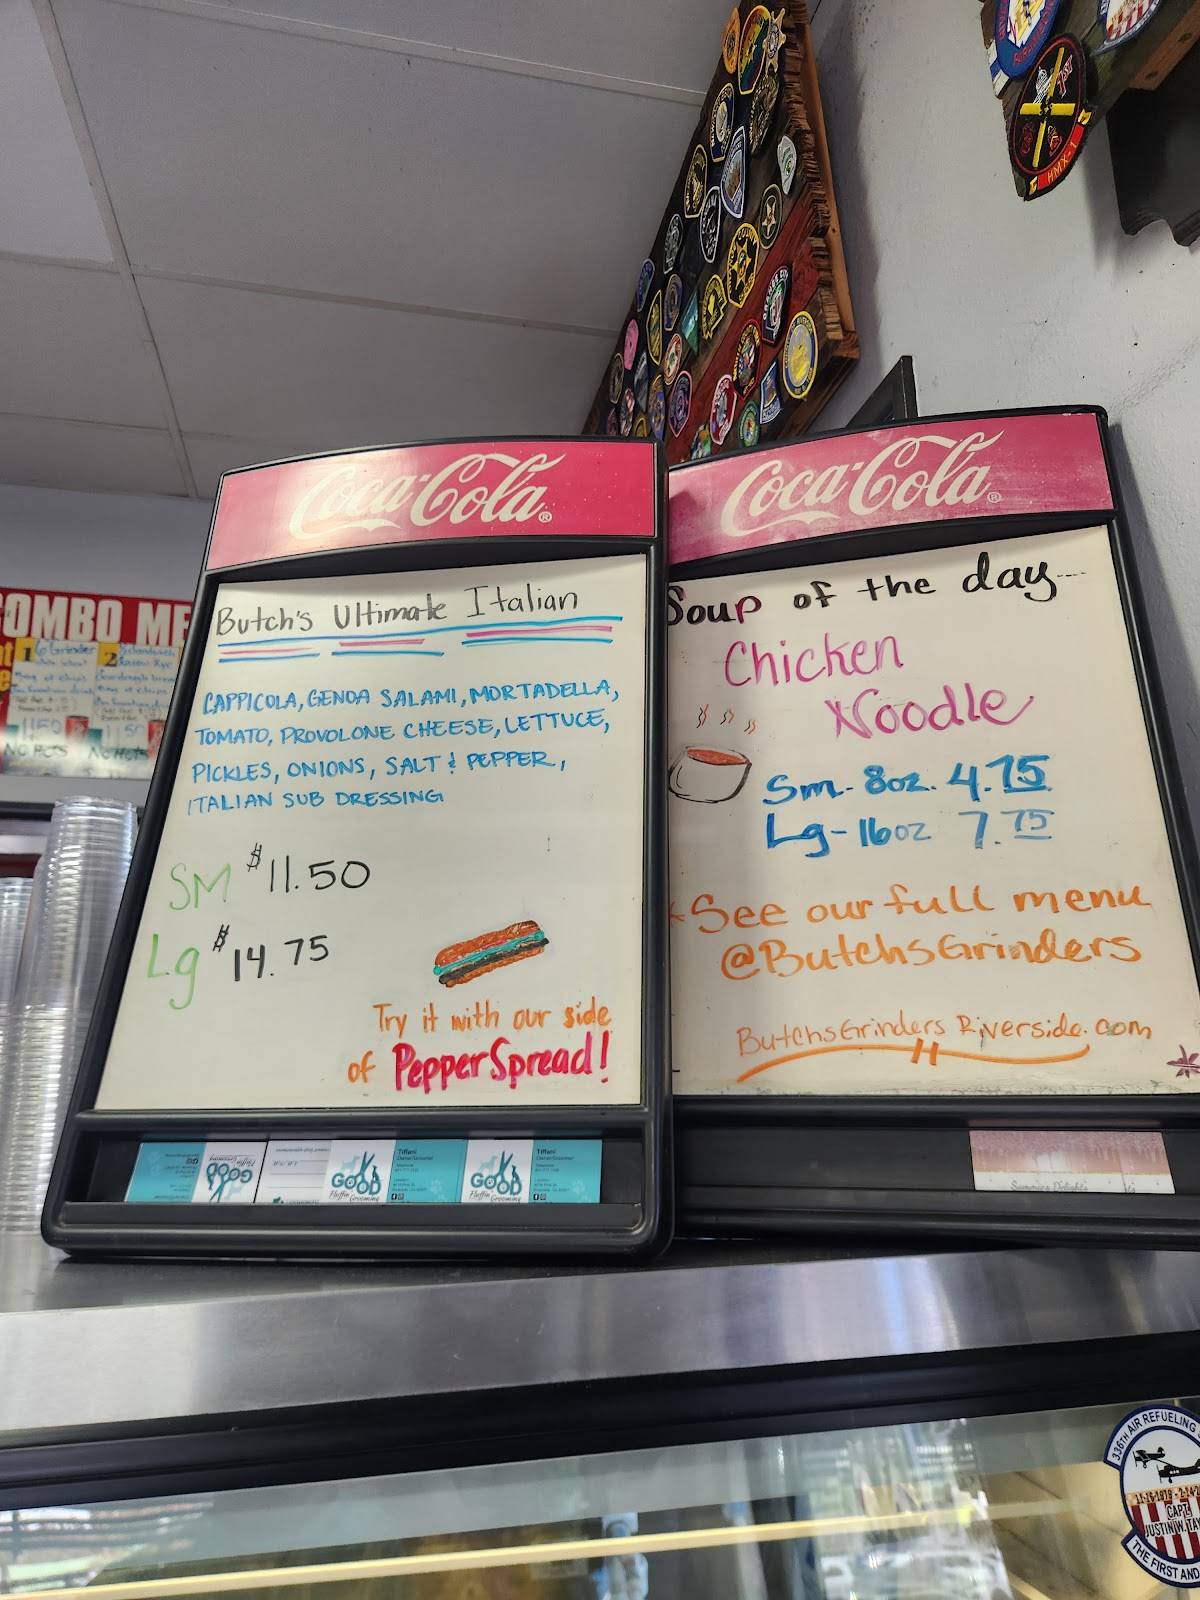 Coca-Cola®
Butch's Ultimate Italian
CAPPICOLA, GENOA SALAMI, MORTADELLA,
TOMATO, PROVOLONE CHEESE, LETTUCE,
PICKLES, ONIONS, SALT & PEPPER,
ITALIAN SUB DRESSING
SM $11.50
Lg $14.75
Try it with our side
of Pepper Spread!
GOOD
Fluffin Grooming
Tiffani
GOOD
Fluffin Grooming
Tiffani
GOOD
Fluffin Grooming
Coca-Cola®
Soup of the day...
Chicken
Noodle
Sm. 8oz. 4.75
Lg-16oz 7.75
See our full menu
@ButchsGrinders
ButchsGrindersRiverside.com
OMBO ME
1 6 Grinder
2
11.50
NO HOTS
HMX-1
336TH AIR REFUELING
CAPT
JUSTIN W. TAY
THE FIRST AND